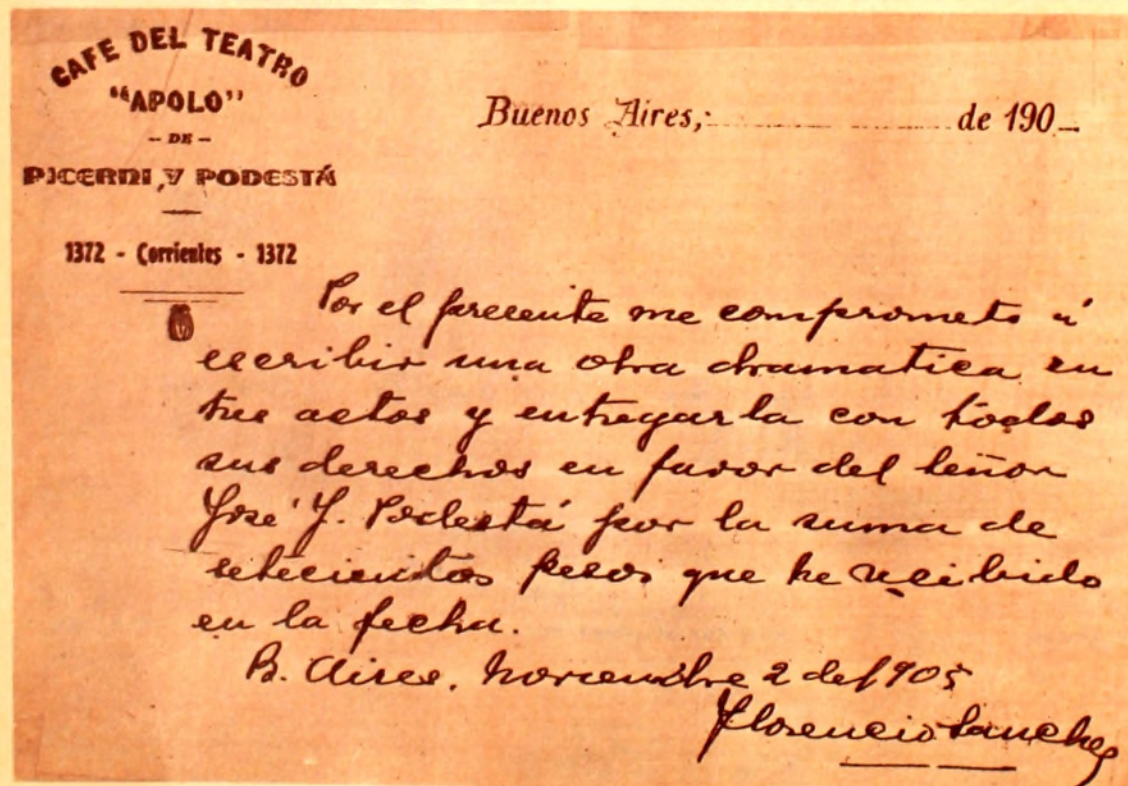 CAFE DEL TEATRO
"APOLO"
- DE -
PICERNI, Y PODESTÁ
1372 - Corrientes - 1372
Buenos Aires, de 190
Por el presente me comprometo á
escribir una obra dramatica en
tres actos y entregarla con todos
sus derechos en favor del señor
José J. Podestá por la suma de
setecientos pesos que he recibido
en la fecha.
B. Aires. Noviembre 2 de 1905
Florencio Sanchez